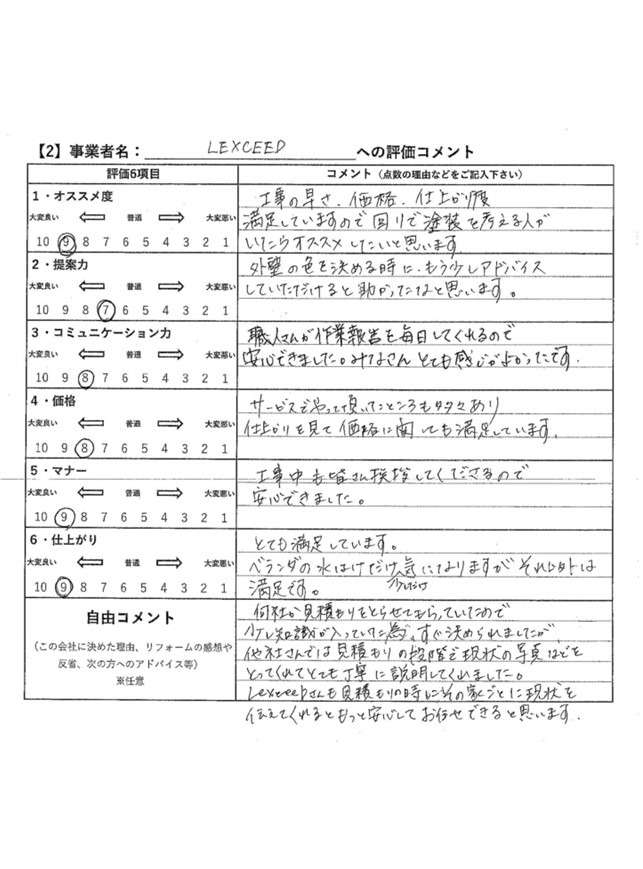 【2】事業者名： LEXCEED への評価コメント
評価6項目
コメント（点数の理由などをご記入下さい）
1・オススメ度
大変良い 普通 大変悪い
10 9 8 7 6 5 4 3 2 1
工事の早さ、価格、仕上がり度
満足していますので回りで塗装を考える人が
いたらオススメしたいと思います
2・提案力
大変良い 普通 大変悪い
10 9 8 7 6 5 4 3 2 1
外壁の色を決める時に、もう少しアドバイス
していただけると助かったなと思います。
3・コミュニケーション力
大変良い 普通 大変悪い
10 9 8 7 6 5 4 3 2 1
職人さんが作業報告を毎日してくれるので
安心できました。みなさんとても感じがよかったです.
4・価格
大変良い 普通 大変悪い
10 9 8 7 6 5 4 3 2 1
サービスでやって頂いたところも多々あり
仕上がりを見て価格に関しても満足しています.
5・マナー
大変良い 普通 大変悪い
10 9 8 7 6 5 4 3 2 1
工事中も皆さん挨拶してくださるので
安心できました。
6・仕上がり
大変良い 普通 大変悪い
10 9 8 7 6 5 4 3 2 1
とても満足しています。
ベランダの水はけだけ少しだけ気になりますがそれ以外は
満足です。
自由コメント
（この会社に決めた理由、リフォームの感想や
反省、次の方へのアドバイス等）
※任意
何社か見積もりをとらせてもらっていたので
少し知識が入っていた為、すぐ決められましたが、
他社さんでは見積もりの段階で現状の写真などを
とってくれてとても丁寧に説明してくれました。
Lexceedさんも見積もりの時にその家ごとに現状を
伝えてくれるともっと安心してお任せできると思います.